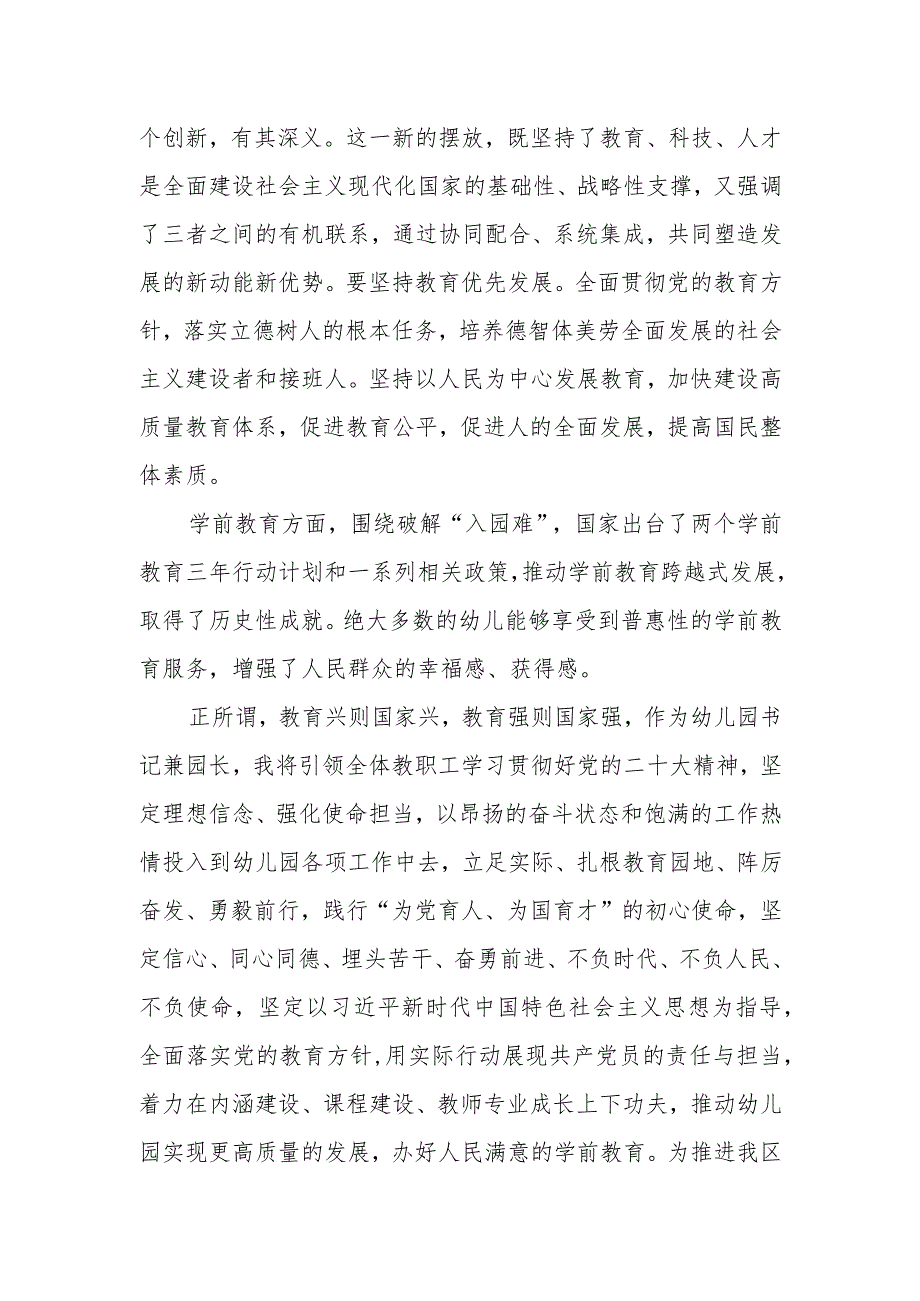 个创新，有其深义。这一新的摆放，既坚持了教育、科技、人才
是全面建设社会主义现代化国家的基础性、战略性支撑，又强调
了三者之间的有机联系，通过协同配合、系统集成，共同塑造发
展的新动能新优势。要坚持教育优先发展。全面贯彻党的教育方
针，落实立德树人的根本任务，培养德智体美劳全面发展的社会
主义建设者和接班人。坚持以人民为中心发展教育，加快建设高
质量教育体系，促进教育公平，促进人的全面发展，提高国民整
体素质。
学前教育方面，围绕破解“入园难”，国家出台了两个学前
教育三年行动计划和一系列相关政策，推动学前教育跨越式发展，
取得了历史性成就。绝大多数的幼儿能够享受到普惠性的学前教
育服务，增强了人民群众的幸福感、获得感。
正所谓，教育兴则国家兴，教育强则国家强，作为幼儿园书
记兼园长，我将引领全体教职工学习贯彻好党的二十大精神，坚
定理想信念、强化使命担当，以昂扬的奋斗状态和饱满的工作热
情投入到幼儿园各项工作中去，立足实际、扎根教育园地、阵厉
奋发、勇毅前行，践行“为党育人、为国育才”的初心使命，坚
定信心、同心同德、埋头苦干、奋勇前进、不负时代、不负人民、
不负使命，坚定以习近平新时代中国特色社会主义思想为指导，
全面落实党的教育方针,用实际行动展现共产党员的责任与担当，
着力在内涵建设、课程建设、教师专业成长上下功夫，推动幼儿
园实现更高质量的发展，办好人民满意的学前教育。为推进我区